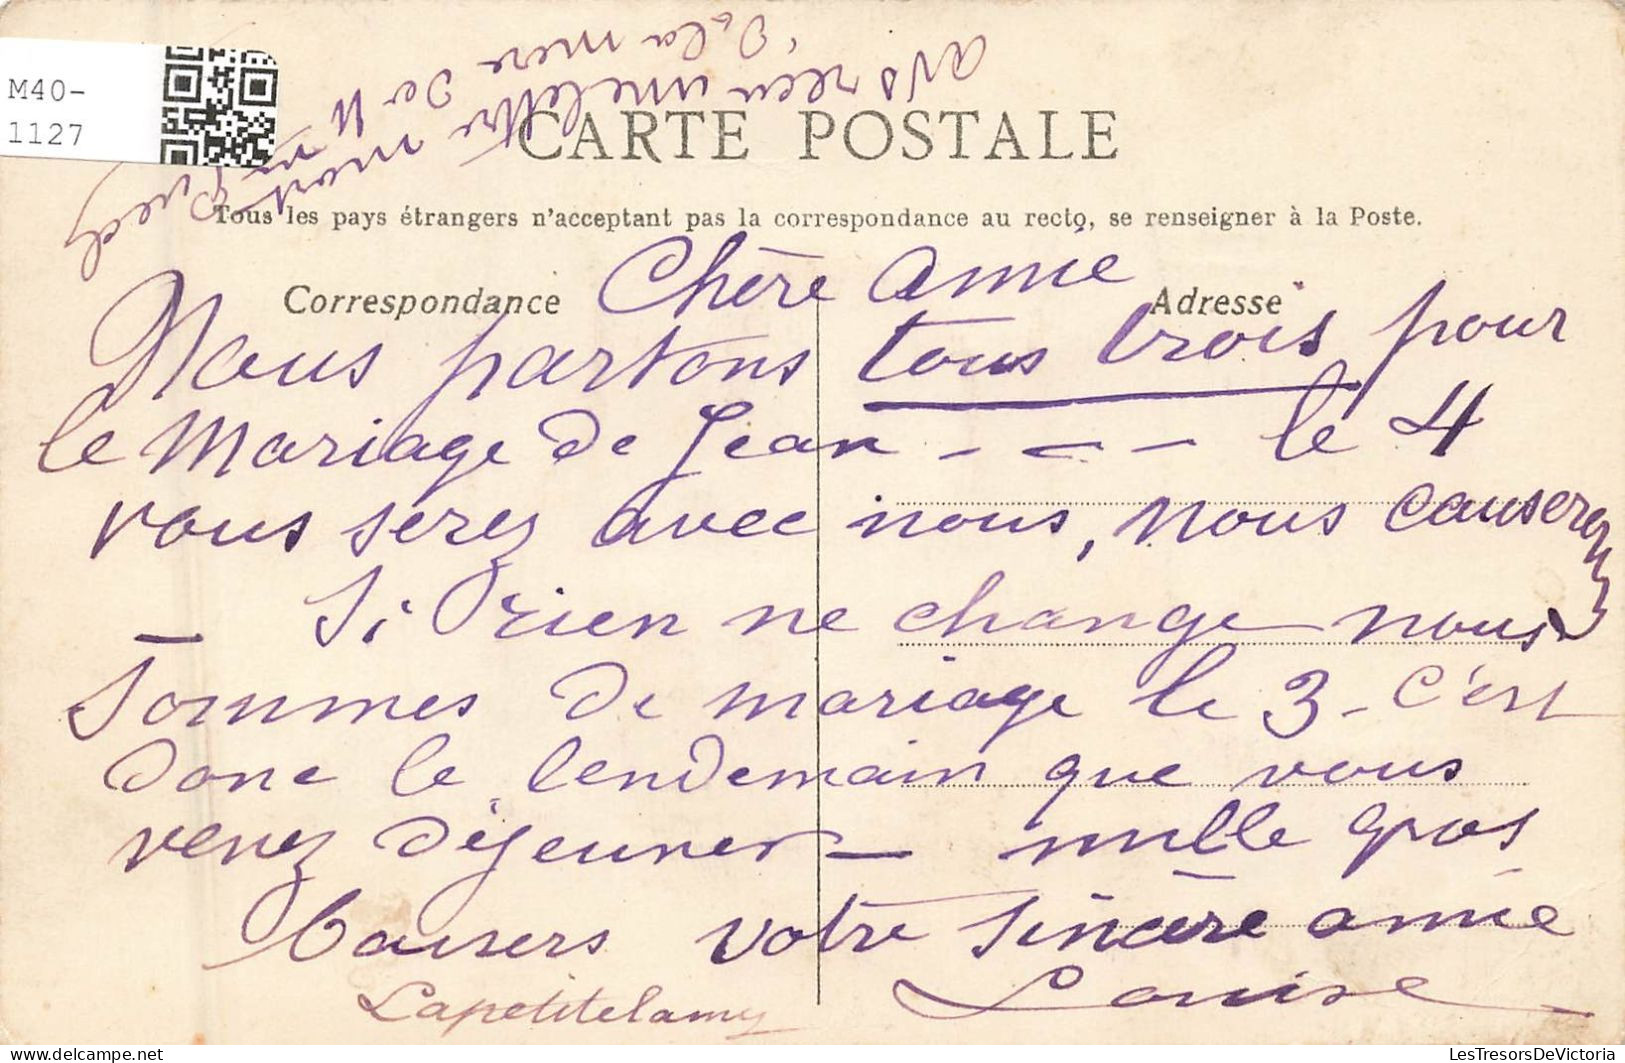 M40-
1127
avs recu une lettre
de la mere de M
mort
CARTE POSTALE
Tous les pays étrangers n'acceptant pas la correspondance au recto, se renseigner à la Poste.
Correspondance
Adresse
Chère amie
Nous partons tous trois pour
le mariage de Jean - - - le 4
vous serez avec nous, nous causerons
Si rien ne change nous
sommes de mariage le 3 - c'est
donc le lendemain que vous
venez déjeuner — mille gros
baisers votre sincère amie
Louise
Lapetitelamy
LesTresorsDeVictoria